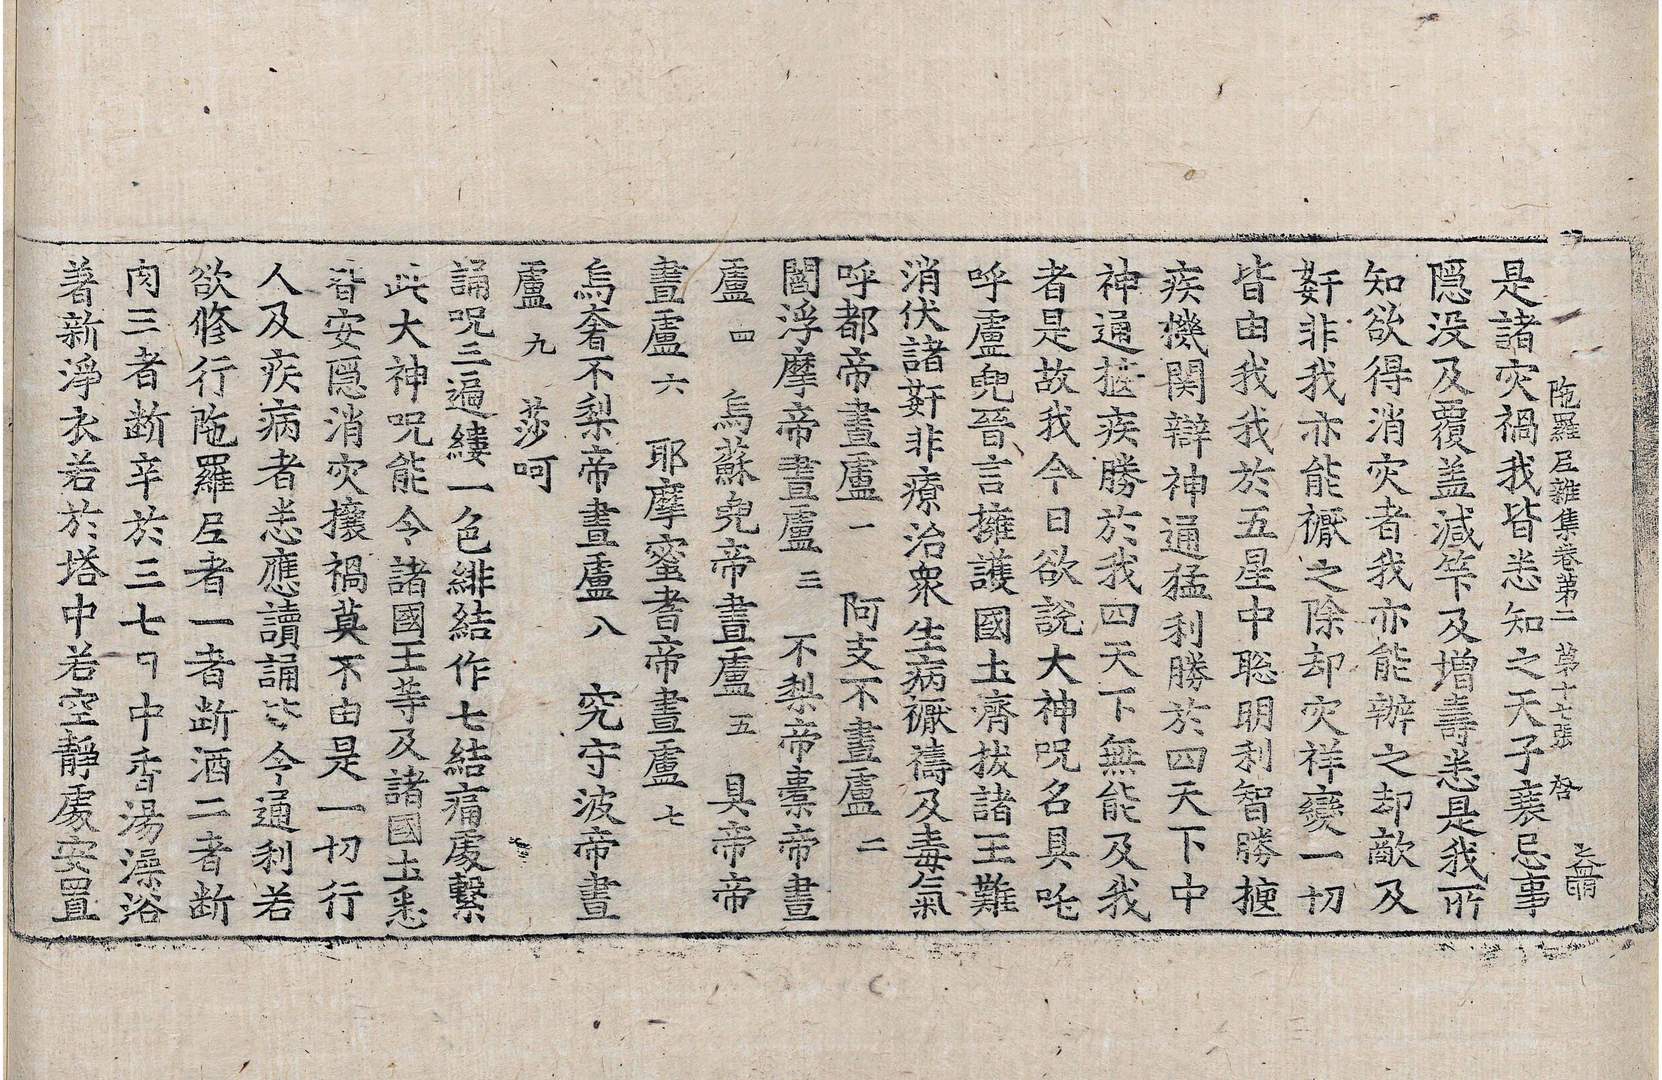 陁羅尼雜集卷第二　第十七張　啓
是諸灾禍我皆悉知之天子衰忌事
隠没及覆盖減筭及增壽悉是我所
知欲得消灾者我亦能辦之却敵及
姧非我亦能禳之除却灾祥變一切
皆由我我於五星中聡明利智勝㨿
疾機関辯神通猛利勝於四天下中
神通㨿疾勝於我四天下無能及我
者是故我今日欲說大神呪名具吒
呼盧兜晉言擁護國土濟拔諸王難
消伏諸姧非療治衆生病禳禱及毒氣
呼都帝晝盧一　阿支不晝盧二
閻浮摩帝晝盧三　不梨帝橐帝晝
盧四　烏蘇兜帝晝盧五　具帝帝
晝盧六　耶摩蜜耆帝晝盧七
烏奢不梨帝晝盧八　究守波帝晝
盧九　莎呵
誦呪三遍縷一色緋結作七結痛䖏繫
此大神呪能令諸國王䓁及諸國土悉
皆安隠消灾攘禍莫不由是一切行
人及疾病者悉應讀誦令今通利若
欲修行陁羅尼者一者断酒二者断
肉三者断辛於三七日中香湯澡浴
著新淨衣若於塔中若空靜䖏安置